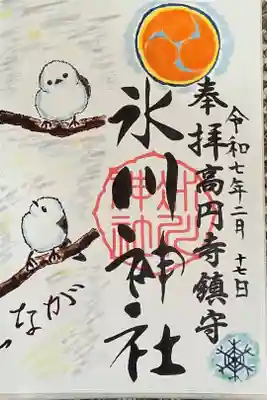 令和七年二月十七日
奉拝高円寺鎮守
氷川神社
なが